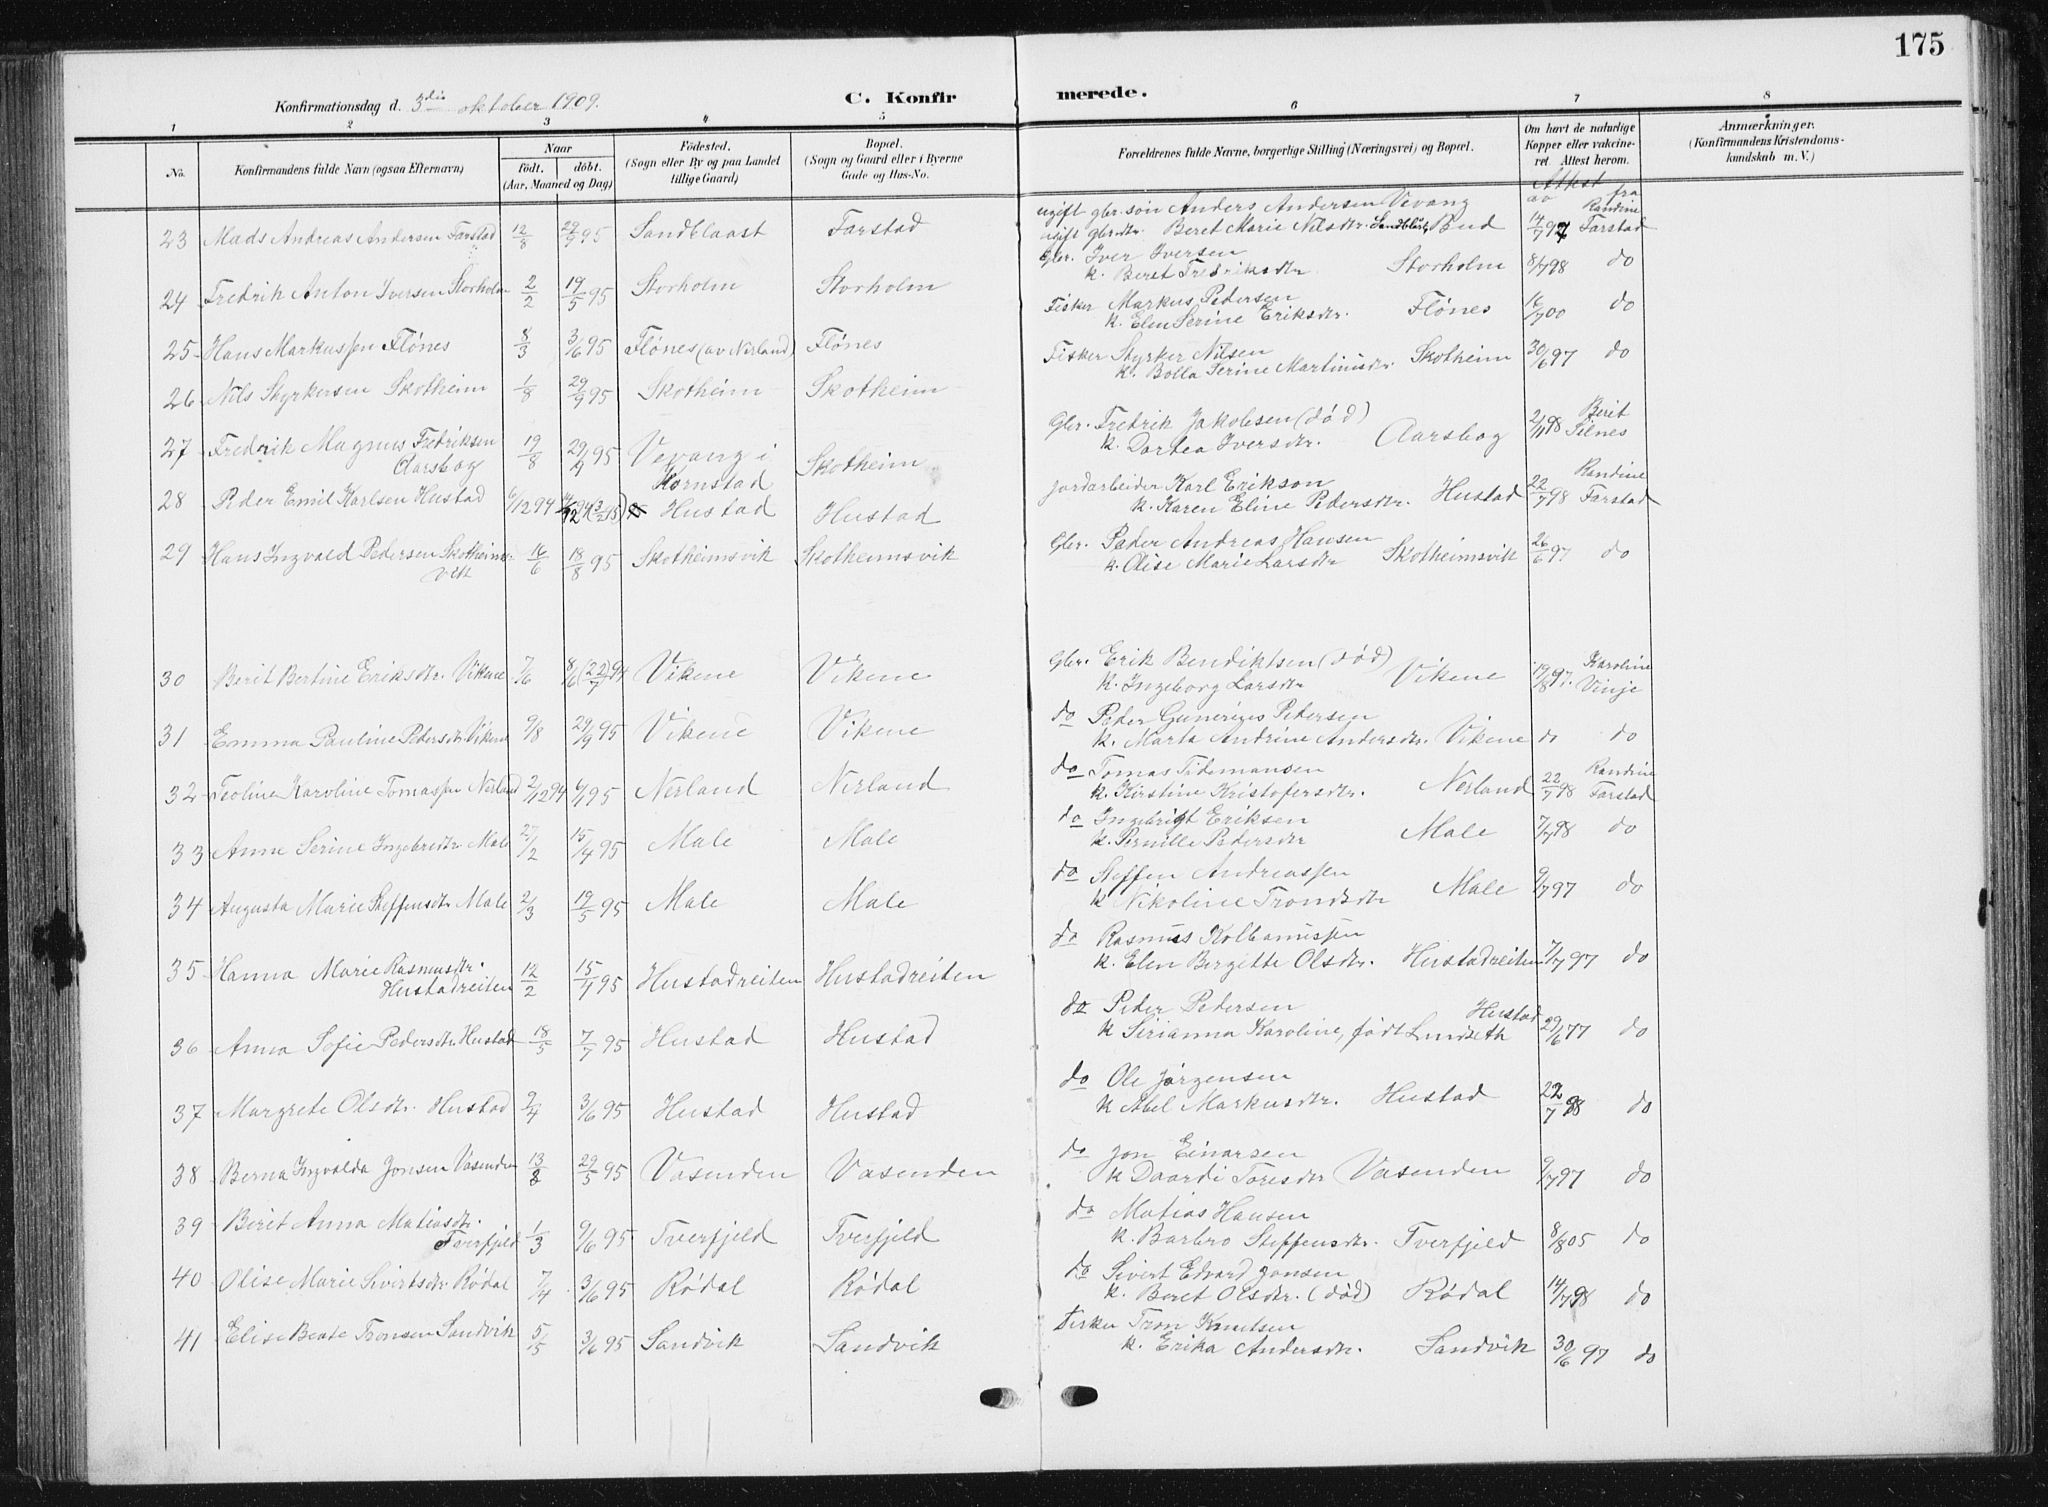 175
Konfirmationsdag d. 3die oktober 1909.
C. Konfirmerede.
1 2 3 4 5 6 7 8
No. Konfirmandens fulde Navn (ogsaa Efternavn) Naar født. døbt. (Aar, Maaned og Dag) Fødested. (Sogn eller By og paa Landet tillige Gaard) Bopæl. (Sogn og Gaard eller i Byerne Gade og Hus-No. Forældrenes fulde Navne, borgerlige Stilling (Næringsvei) og Bopæl. Om havt de naturlige Kopper eller vakcineret. Attest herom. Anmærkninger. (Konfirmandens Kristendomskundskab m. V.)
Attest av fra
23 Mads Andreas Andersen Farstad 12/8 29/9 95 Sandblaast Farstad ugift gbr. søn Anders Andersen Vevang
ugift gbr.dtr. Beret Marie Nilsdtr. Sandblåst, Bud 14/7 97 Randine Farstad
24 Fredrik Anton Iversen Storholm 2/2 19/5 95 Storholm Storholm Gbr. Iver Iversen
k. Beret Fredriksdtr Storholm 8/7 98 do
25 Hans Markussen Flønes 8/3 3/6 95 Flønes (av Nerland) Flønes Fisker Markus Pedersen
k. Elen Serine Eriksdtr. Flønes 16/7 00 do
26 Nils Styrkersen Skotheim 1/8 29/9 95 Skotheim Skotheim Fisker Styrker Nilsen
k. Bolla Serine Martinusdtr. Skotheim 30/6 97 do
27 Fredrik Magnus Fredriksen Aarsbog 19/8 29/9 95 Vevang i Kornstad Skotheim Gbr. Fredrik Jakobsen (død)
k. Dortea Iversdtr. Aarsbog 2/11 98 Berit Silnes
28 Peder Emil Karlsen Hustad 6/12 94 14/12 94 (3/2 95) Hustad Hustad jordarbeider Karl Erikson
k. Karen Eline Pedersdtr. Hustad 22/7 98 Randine Farstad
29 Hans Ingvald Pedersen Skotheimsvik 16/6 18/8 95 Skotheimsvik Skotheimsvik Gbr. Peder Andreas Hansen
k. Olise Marie Larsdtr Skotheimsvik 26/6 97 do
30 Berit Bertine Eriksdtr. Vikene 7/6 8/6 (22/7) 94 Vikene Vikene Gbr. Erik Bendiktsen (død)
k. Ingeborg Larsdtr Vikene 19/8 97. Karoline Vinje
31 Emma Pauline Pedersdtr. Vikene 9/8 29/9 95 Vikene Vikene do Peder Gunerius Petersen
k. Marta Andrine Andersdtr. Vikene do do
32 Teoline Karoline Tomassen Nerland 2/12 94 6/1 95 Nerland Nerland do Tomas Tidemansen
k. Kirstine Kristofersdtr. Nerland 22/7 98 Randine Farstad
33 Anne Serine Ingebredtr. Male 27/2 15/4 95 Male Male do Ingebrigt Eriksen
k. Pernille Pedersdtr Male 7/7 98 do
34 Augusta Marie Steffensdtr. Male 2/3 19/5 95 Male Male do Steffen Andreassen
k Nikoline Trondsdtr Male 9/7 97 do
35 Hanna Marie Rasmusdtr. Hustadreiten 12/2 15/4 95 Hustadreiten Hustadreiten do Rasmus Kolbanussen
k. Elen Birgitte Olsdtr. Hustadreiten 7/7 97 do
36 Anna Sofie Pedersdtr. Hustad 18/5 7/7 95 Hustad Hustad do Peder Pedersen
k Sirianna Karoline, født Lundseth Hustad 29/6 77 do
37 Margrete Olsdtr. Hustad 2/4 3/6 95 Hustad Hustad do Ole Jørgensen
k Abel Markusdtr. Hustad 22/7 98 do
38 Berna Ingvalda Jonsen Vasenden 13/3 29/5 95 Vasenden Vasenden do Jon Einarsen
k Daardi Toresdtr Vasenden 9/7 97 do
39 Berit Anna Matiasdtr. Tverfjeld 1/3 9/6 95 Tverfjeld Tverfjeld do Matias Hansen
k. Barbro Steffensdtr. Tverfjeld 8/8 05 do
40 Olise Marie Sivertsdtr Rødal 7/4 3/6 95 Rødal Rødal do Sivert Edvard Jonsen
k. Beret Olsdtr. (død) Rødal 14/7 98 do
41 Elise Beate Tronsen Sandvik 5/5 3/6 95 Sandvik Sandvik Fisker Tron Knutsen
k. Erika Andersdtr. Sandvik 30/6 97 do